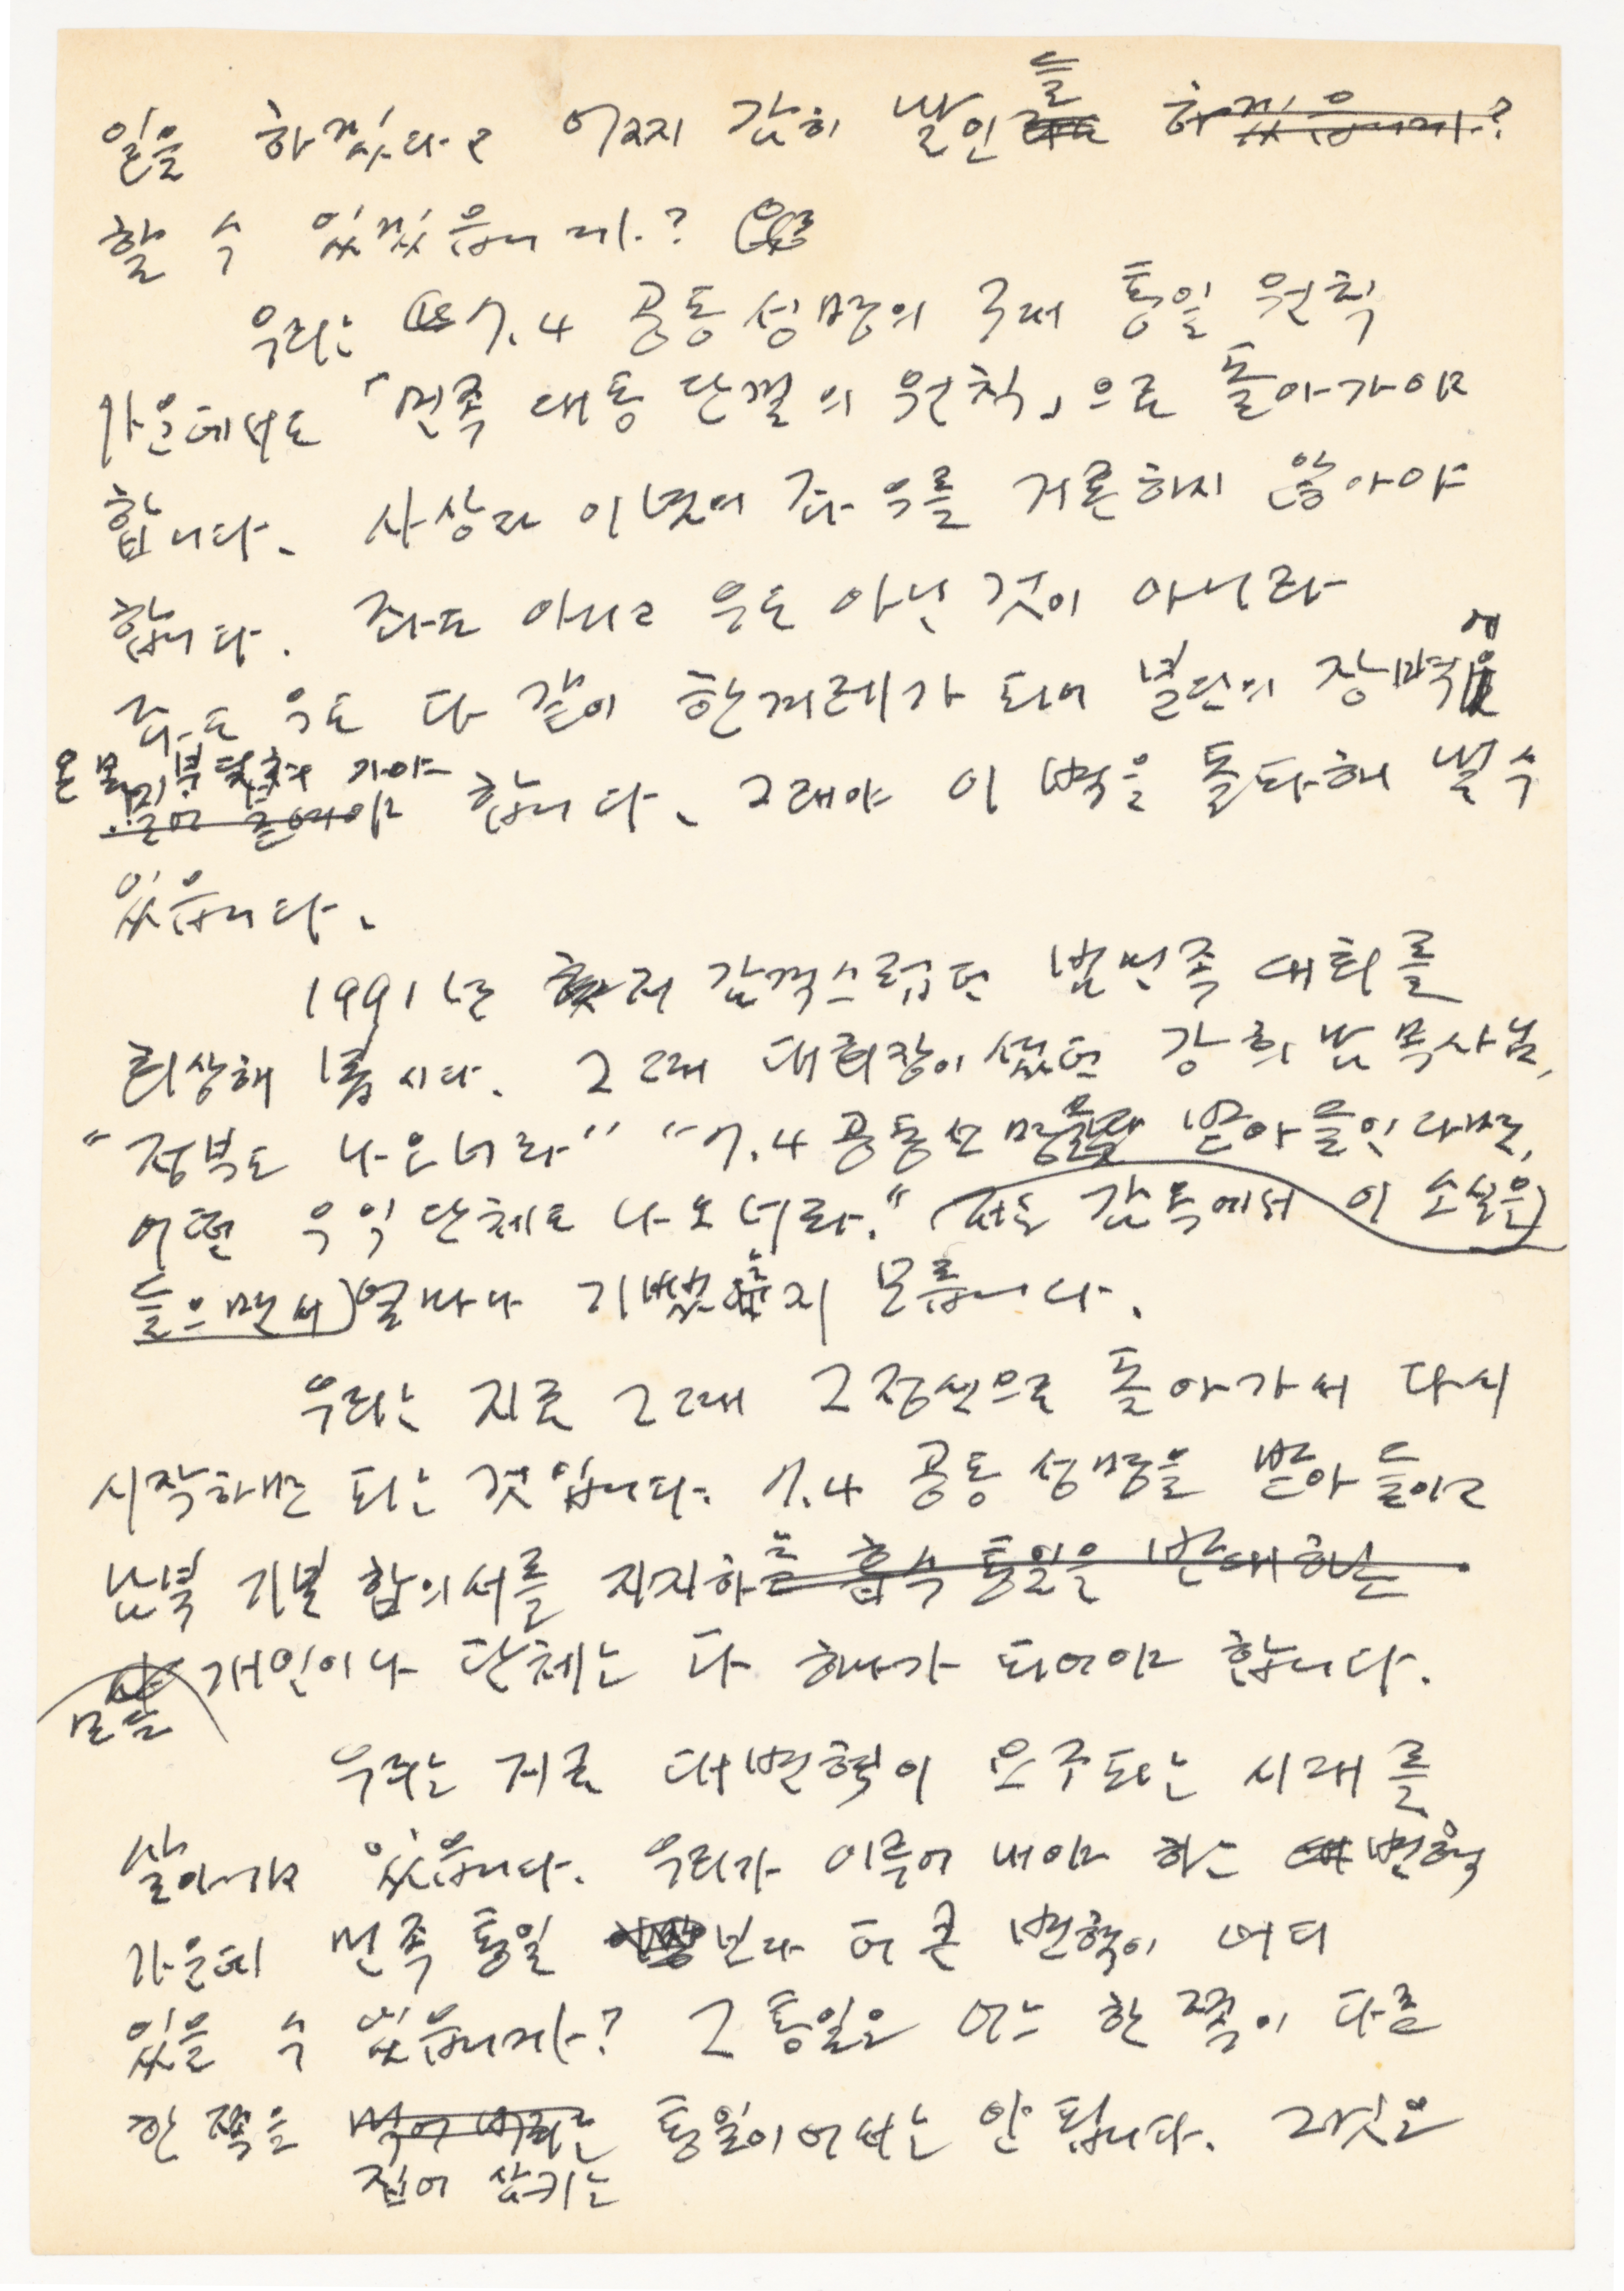 일을 하겠다고 어찌 감히 발인들 하겠읍니까?
할 수 있겠읍니까?
우리는 7.4 공동성명의 3대 통일 원칙
가운데서도 「민족 대동 단결의 원칙」으로 돌아가야
합니다. 사상과 이념의 좌우를 거론하지 않아야
합니다. 좌도 아니고 우도 아닌 것이 아니라
좌도 우도 다 같이 한겨레가 되어 분단의 장벽에
온 몸 부딪쳐 가야
합니다. 그래야 이 벽을 돌파해 낼 수
있읍니다.
1991년 저 감격스럽던 범민족 대회를
회상해 봅시다. 그 때 대회장이셨던 강희남 목사님,
"정부도 나오너라" "7.4 공동성명을 받아들인다면,
어떤 우익 단체도 나오너라." 저는 감옥에서 이 소식을
들으면서 얼마나 기뻤는지 모릅니다.
우리는 지금 그 때 그 정신으로 돌아가서 다시
시작하면 되는 것입니다. 7.4 공동 성명을 받아 들이고
남북 기본 합의서를 지지하는 흡수 통일을 반대하는
모든 개인이나 단체는 다 하나가 되어야 합니다.
우리는 지금 대변혁이 요구되는 시대를
살아가고 있읍니다. 우리가 이루어 내야 하는 변혁
가운데 민족 통일보다 더 큰 변혁이 어디
있을 수 있읍니까? 그 통일은 어느 한 쪽이 다른
한 쪽을 먹어 버리는 통일이어서는 안 됩니다. 그것은
집어 삼키는